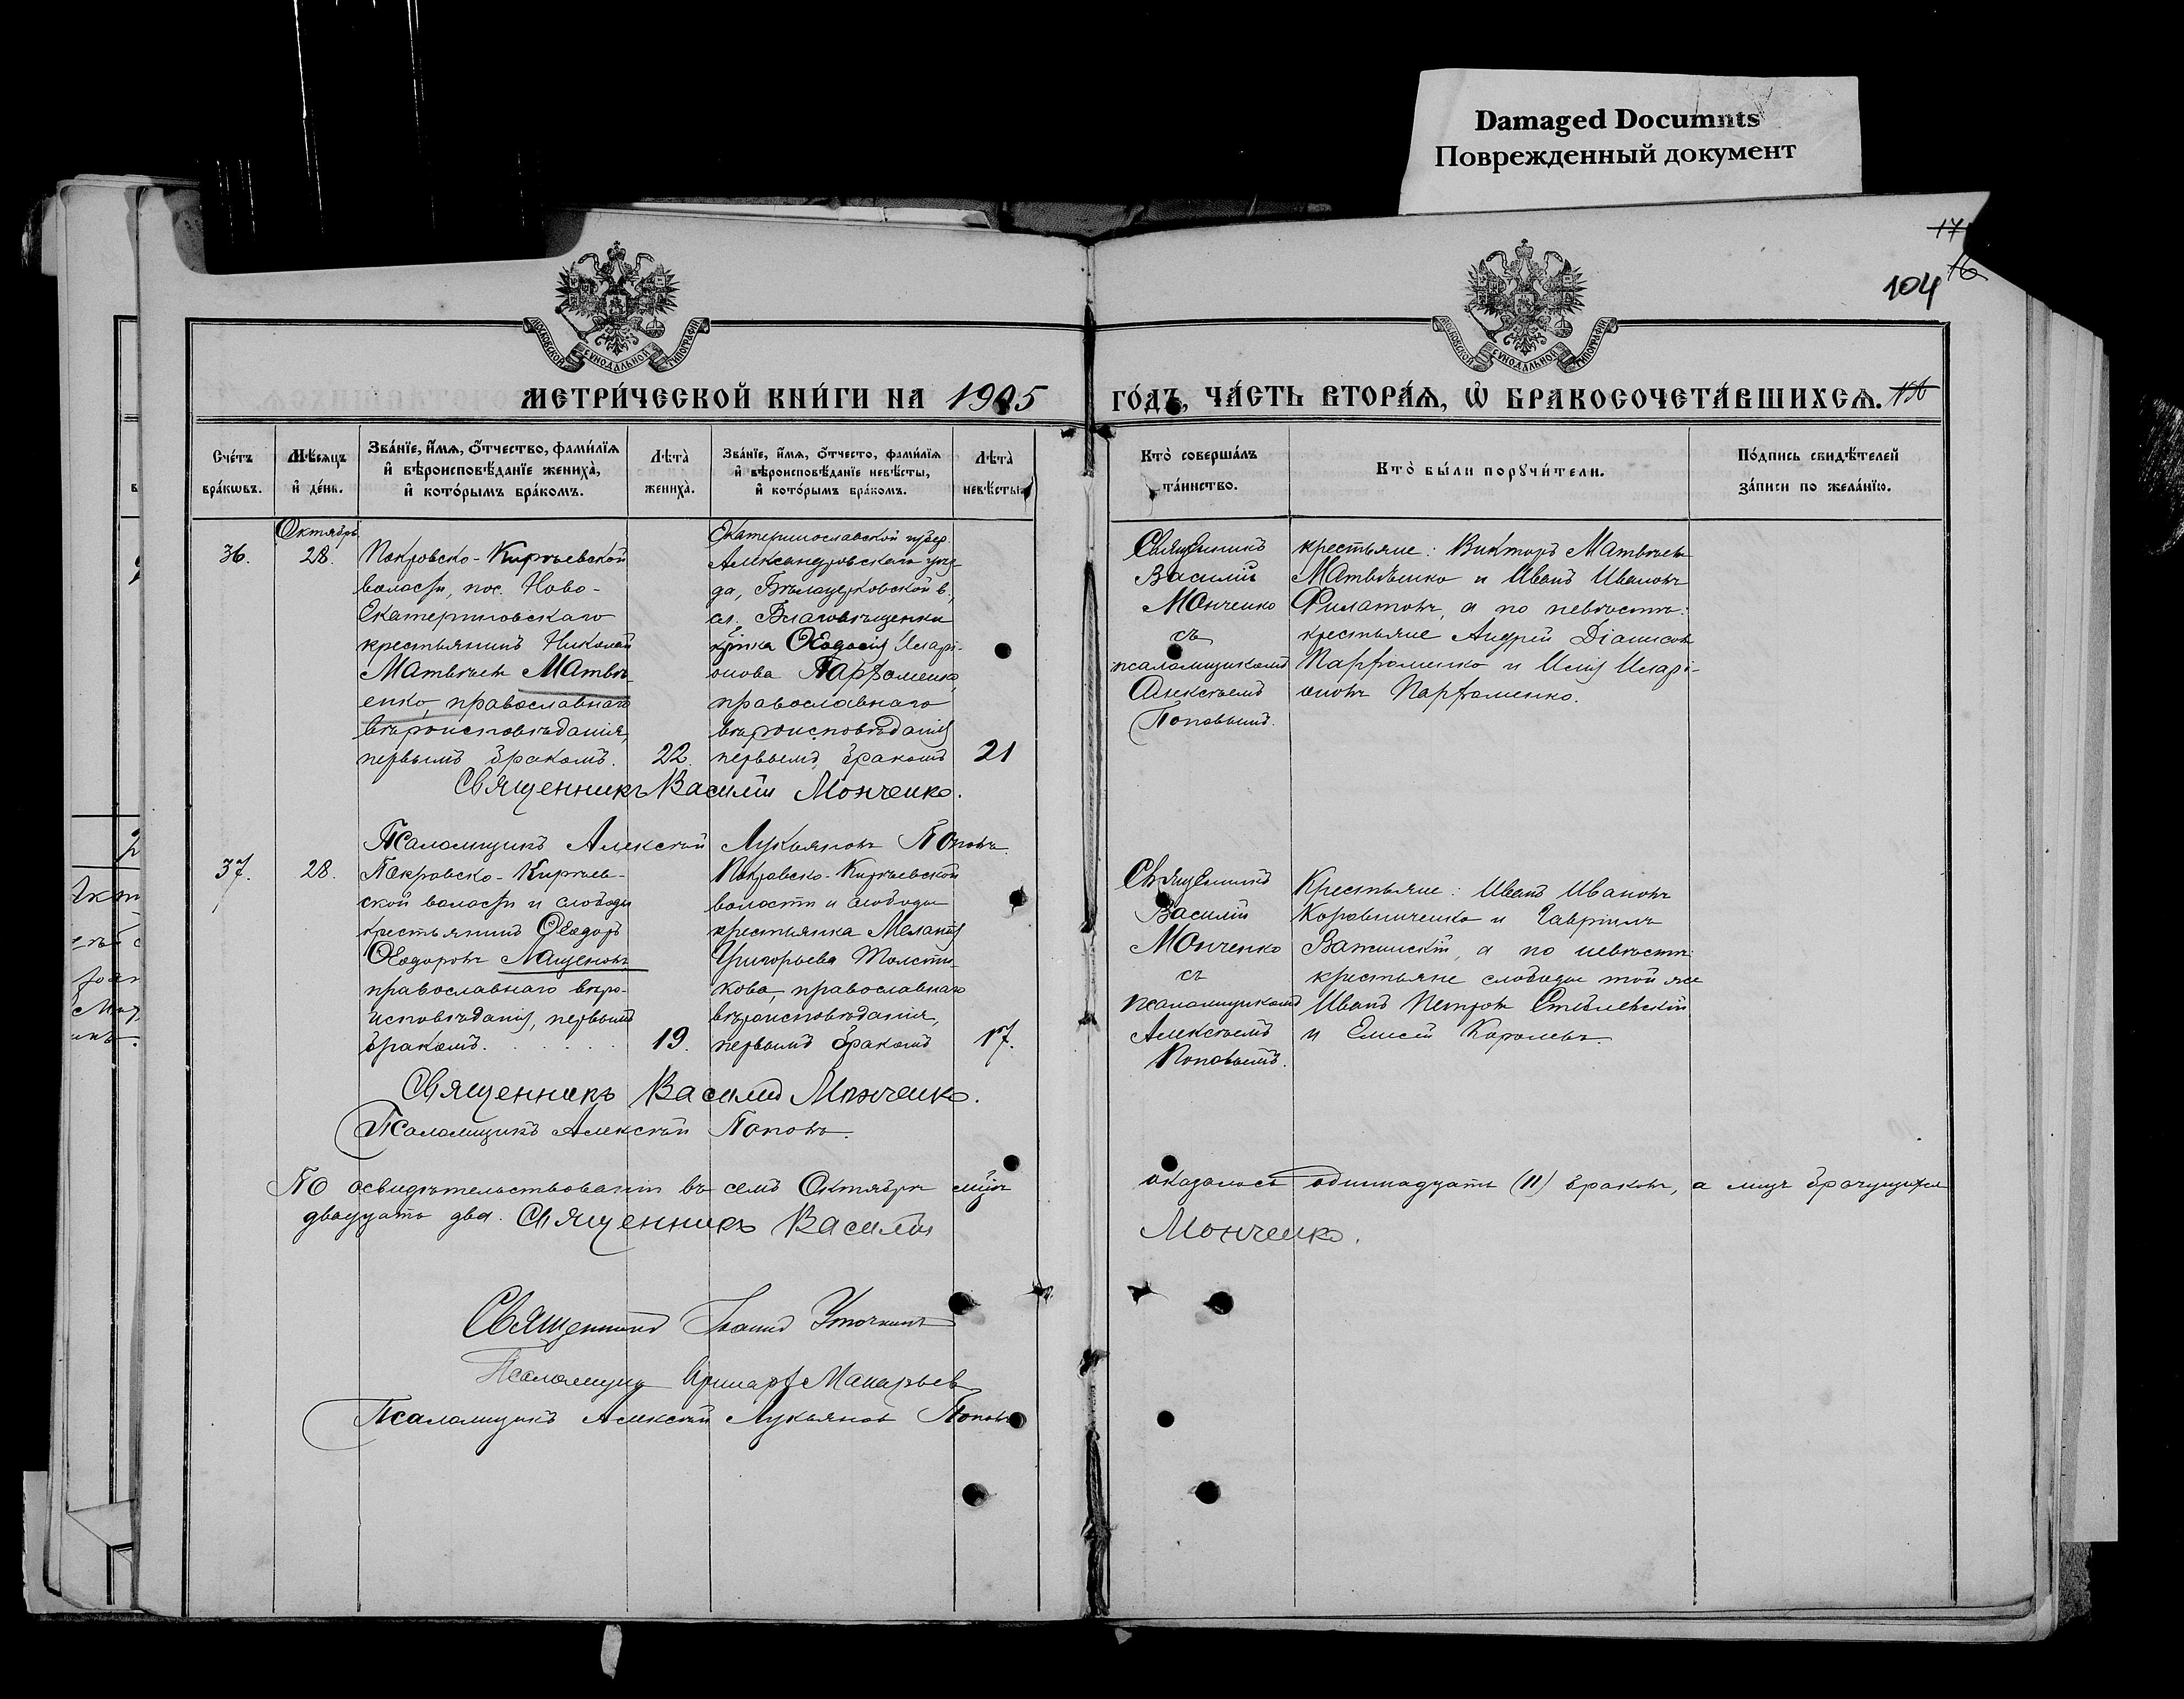 Damaged Documnts
Поврежденный документ
17
16
104
МОСКОВСКОЙ СѴНОДАЛЬНОЙ ТИПОГРАФІИ
МОСКОВСКОЙ СѴНОДАЛЬНОЙ ТИПОГРАФІИ
МЕТРИ́ЧЕСКОЙ КНИ́ГИ НА 1905
ГО́ДЪ, ЧА́СТЬ ВТОРА́Ѧ, Ѡ҆ БРАКОСОЧЕТА́ВШИХСѦ.
Сче́тъ бра́кѡвъ.
Мѣ́сѧцъ и҆ де́нь.
Зва́нїе, и҆́мѧ, ѻ҆́тчество, фами́лїѧ и҆ вѣроисповѣ́данїе жениха̀, и҆ кото́рымъ бра́комъ.
Лѣта̀ жениха̀.
Зва́нїе, и҆́мѧ, ѻ҆́тчесто, фами́лїѧ и҆ вѣроисповѣ́данїе невѣ́сты, и҆ кото́рымъ бра́комъ.
Лѣта̀ невѣ́сты.
Кто̀ соверша́лъ та́инство.
Кто̀ бы́ли порꙋчи́тели.
По́дпись свидѣ́телей за́писи по жела́нїю.
Октябрь
36.
28.
Покровско-Кирѣевской
волости, пос. Ново-
Екатериновскаго
крестьянинъ Николай
Матвѣевъ Матвѣ-
енко, православнаго
вѣроисповѣданія,
первымъ бракомъ.
22.
Екатеринославской губер.
Александровскаго уѣз-
да, Бѣлоцерковской в.,
сл. Благовѣщенки
кр-нка Ѳеодосія Иларі-
онова Парѳоменко,
православнаго
вѣроисповѣданія
первымъ бракомъ
21
Священникъ
Василій
Монченко
съ
псаломщикомъ
Алексѣемъ
Поповымъ.
крестьяне: Викторъ Матвѣевъ
Матвѣенко и Иванъ Ивановъ
Филатовъ, а по невѣстѣ:
крестьяне Андрей Діанисовъ
Парѳоменко и Илія Иларі-
оновъ Парѳоменко.
Священникъ Василій Монченко.
Псаломщикъ Алексѣй Лукьяновъ Поповъ
37.
28.
Покровско-Кирѣев-
ской волости и слободы
крестьянинъ Ѳеодоръ
Ѳеодоровъ Лащеновъ
православнаго вѣро-
исповѣданія, первымъ
бракомъ.
19.
Покровско-Кирѣевской
волости и слободы
крестьянка Меланія
Григорьева Толсти-
кова, православнаго
вѣроисповѣданія,
первымъ бракомъ
17.
Священникъ
Василій
Монченко
съ
псаломщикомъ
Алексѣемъ
Поповымъ.
Крестьяне: Иванъ Ивановъ
Коравниченко и Гавріилъ
Важинскій, а по невѣстѣ:
крестьяне слободы той же
Иванъ Петровъ
и Елисей Королевъ.
Священникъ Василій Монченко.
Псаломщикъ Алексѣй Поповъ.
По освидѣтельствованіи въ семъ Октябрѣ мцѣ оказалось одиннадцать (11) браковъ, а лицъ брачущихся
двадцать два. Священникъ Василій Монченко.
Священникъ Іоаннъ Уточкинъ
Псаломщикъ Макарьев
Псаломщикъ Алексѣй Лукьяновъ Поповъ